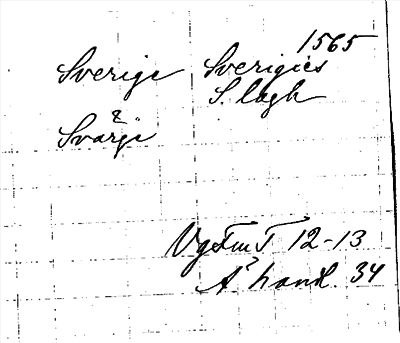 1565
Sverige Sverigies
S. lagh
&
Svärje
VgFmT 12-13
Å' handl. 34